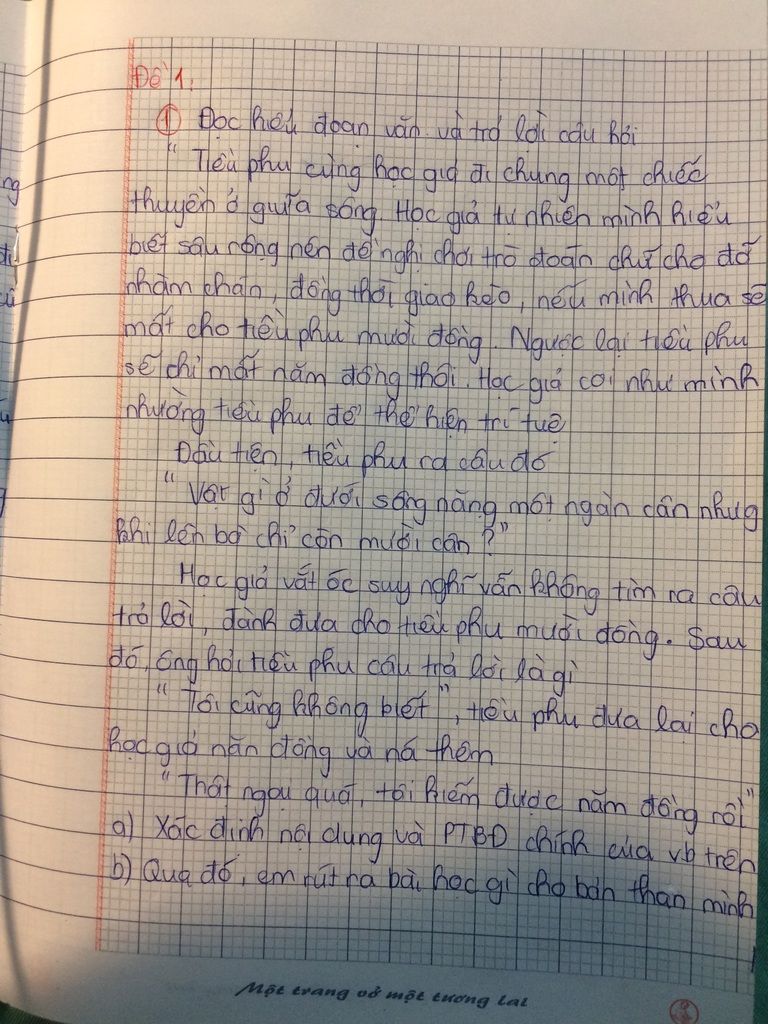 Đề 1:
① Đọc hiểu đoạn văn và trả lời câu hỏi
“ Tiều phu cùng học giả đi chung một chiếc
thuyền ở giữa sông. Học giả tự nhiên mình hiểu
biết sâu rộng nên đề nghị chơi trò đoán chữ cho đỡ
nhàm chán, đồng thời giao kèo, nếu mình thua sẽ
mất cho tiều phu mười đồng. Ngược lại tiều phu
sẽ chỉ mất năm đồng thôi. Học giả coi như mình
nhường tiều phu để thể hiện trí tuệ
Đầu tiên, tiều phu ra câu đố
“ Vật gì ở dưới sông nặng một ngàn cân nhưg
khi lên bờ chỉ còn mười cân ?”
Học giả vắt óc suy nghĩ vẫn không tìm ra câu
trả lời, đành đưa cho tiều phu mười đồng. Sau
đó, ông hỏi tiều phu câu trả lời là gì
“ Tôi cũng không biết ”, tiều phu đưa lại cho
học giả năn đồng và ná thêm
“ Thật ngại quá, tôi kiếm được năm đồng rồi ”
a) Xác định nội dung và PTBĐ chính của vb trên
b) Qua đó, em rút ra bài học gì cho bản thân mình
Một trang vở một tương lai